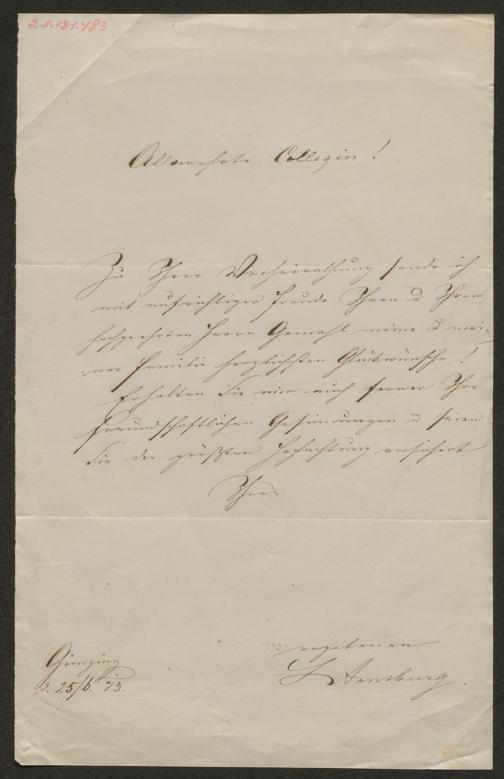 Allverehrte Collegin!
Zu Ihrer Verheirathung sende ich
mit aufrichtiger Freude Ihnen u Ihrem
hochgeehrten Herrn Gemahl meine u mei-
ner Familie herzlichsten Glükwünsche!
Erhalten Sie mir auch ferner Ihre
freundschaftlichen Gesinnungen u seien
Sie der größten Hochachtung versichert
Ihres
ergebenen
Grinzing
25/6. 73.